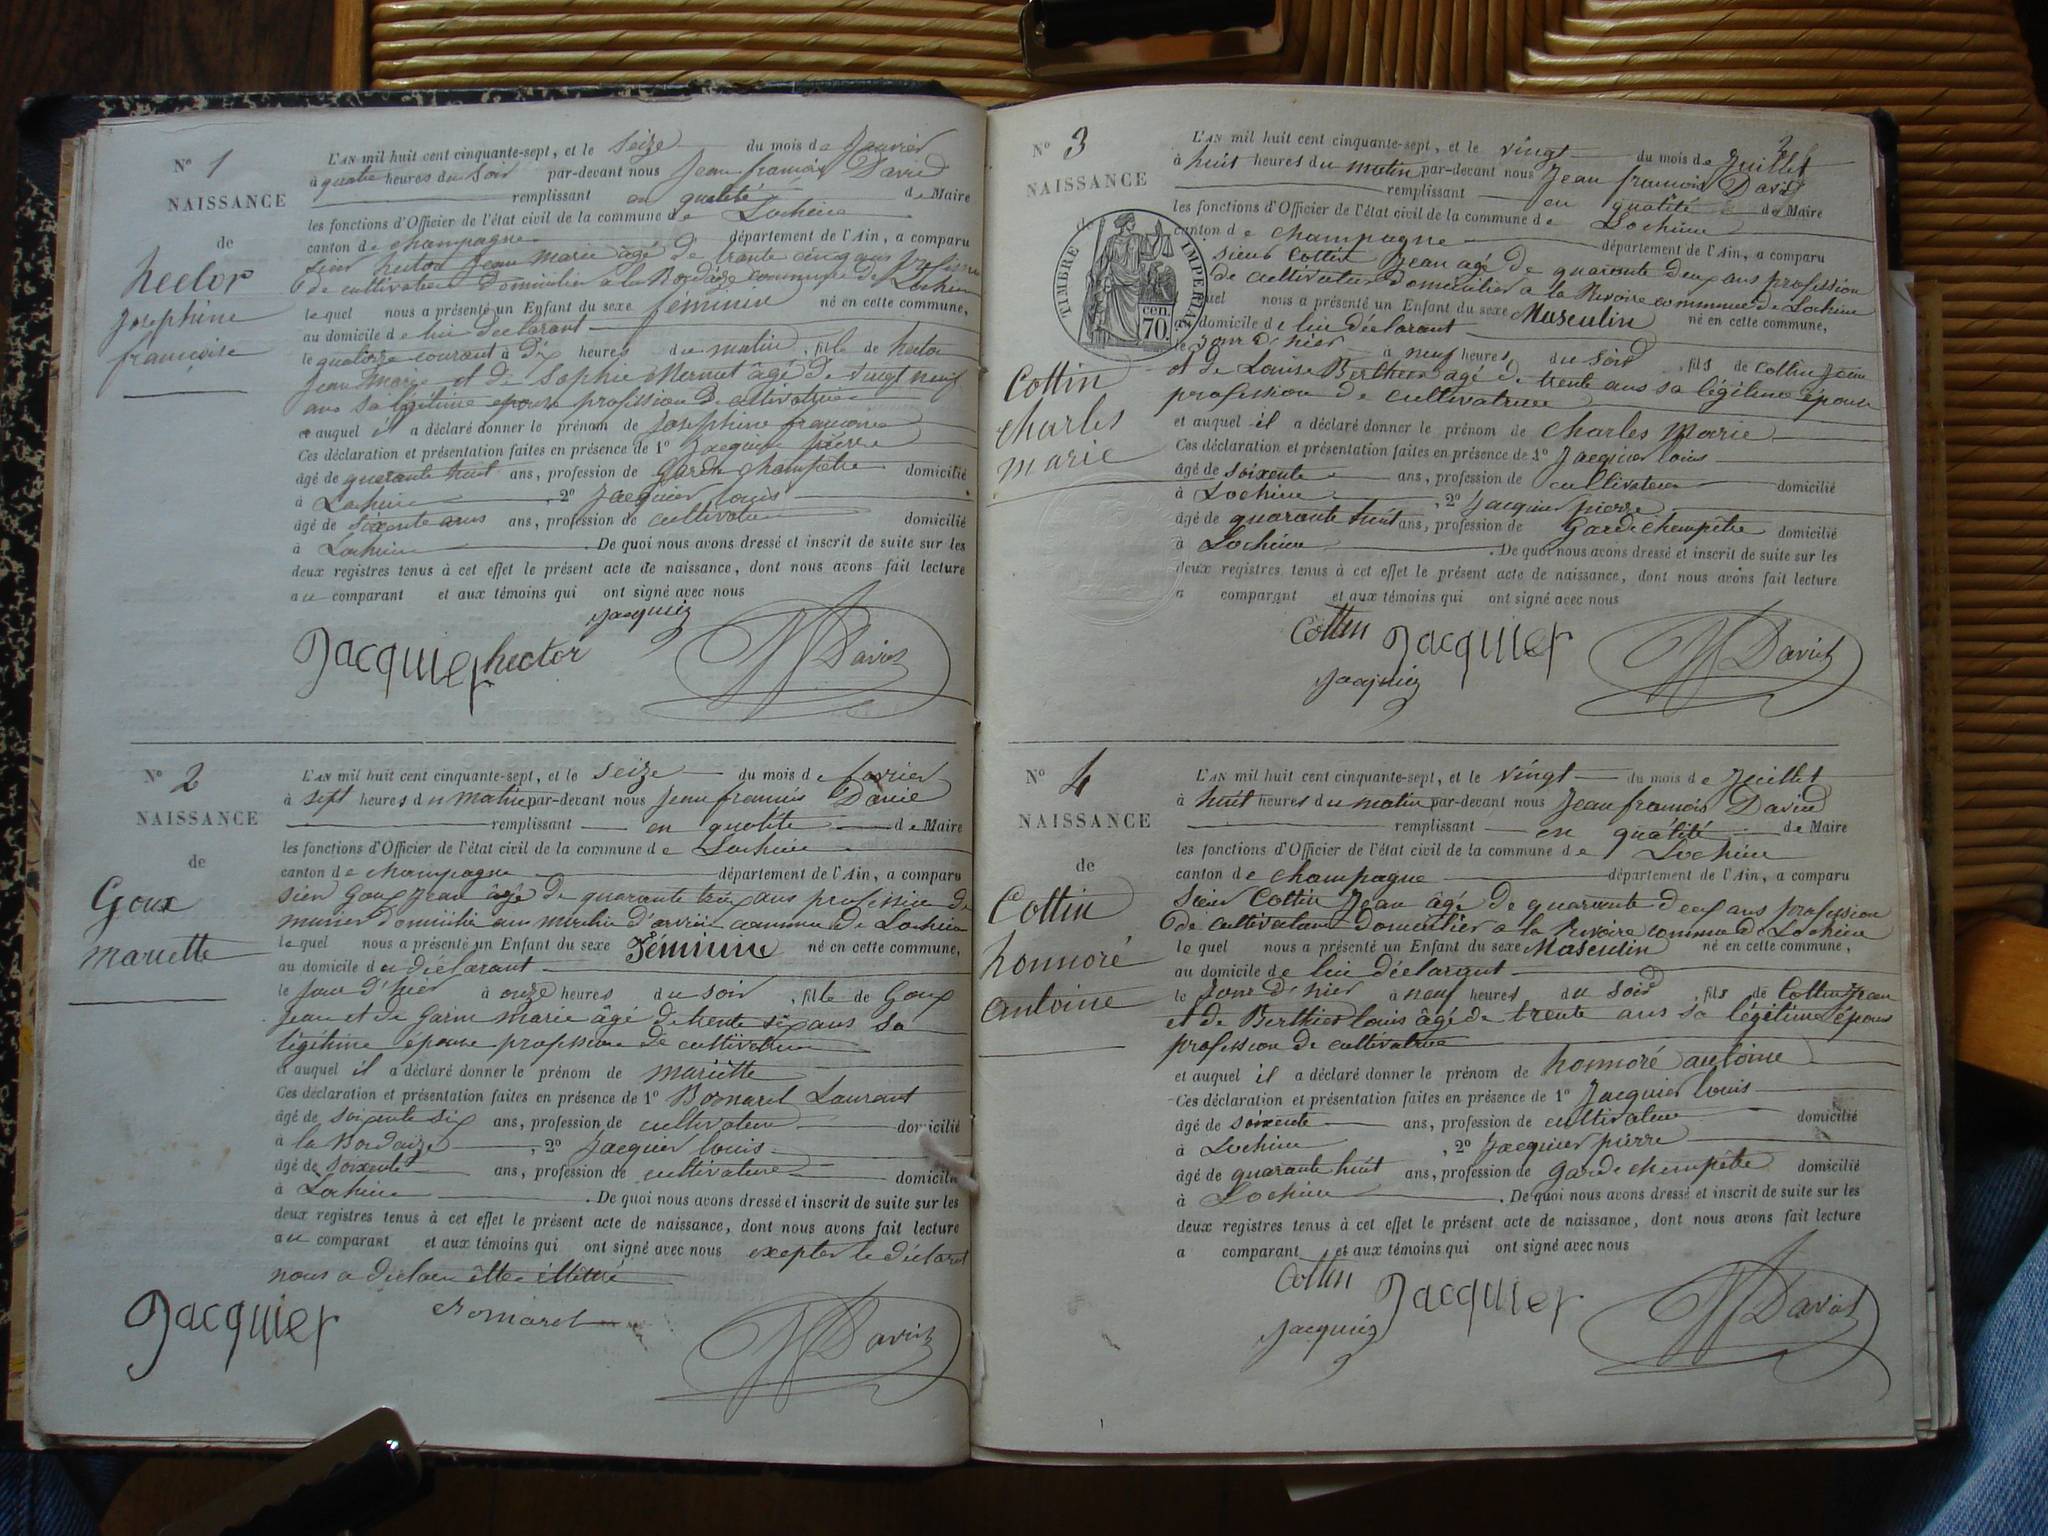 N° 1
NAISSANCE
de
hector
josephine
francoise
L'AN mil huit cent cinquante-sept, et le seize du mois de Janvier
à quatre heures du soir par-devant nous Jean françois David
remplissant en qualité de Maire
les fonctions d'Officier de l'état civil de la commune de Lochieu
canton de champagne département de l'Ain, a comparu
sieur hector Jean marie âgé de trente cinq ans profession
de cultivateur domicilier a la commune de Lochieu
le quel nous a présenté un Enfant du sexe feminin né en cette commune,
au domicile de lui déclarant
le quatorze courant à dix heures du matin, fille de hector
Jean marie et de Sophie âgé de vingt neuf
ans sa légitime epouse profession de cultivatrice
et auquel il a déclaré donner le prénom de josephine francoise
Ces déclaration et présentation faites en présence de 1° Jacquier pierre
âgé de quarante huit ans, profession de Garde champêtre domicilié
à Lochieu, 2° Jacquier louis
âgé de soixente ans ans, profession de cultivateur domicilié
à Lochieu. De quoi nous avons dressé et inscrit de suite sur les
deux registres tenus à cet effet le présent acte de naissance, dont nous avons fait lecture
au comparant et aux témoins qui ont signé avec nous
jacquier
Jacquier hector David
N° 2
NAISSANCE
de
Goux
mariette
L'AN mil huit cent cinquante-sept, et le seize du mois de fevrier
à sept heures du matin par-devant nous Jean francois David
remplissant en qualité de Maire
les fonctions d'Officier de l'état civil de la commune de Lochieu
canton de champagne département de l'Ain, a comparu
sieur Goux Jean âgé de quarante trois ans profession de
munier domicilié au moulin d'arvière commune de Lochieu
le quel nous a présenté un Enfant du sexe Féminine né en cette commune,
au domicile du déclarant
le jour d'hier à onze heures du soir, fille de Goux
Jean et de Garin marie âgé de trente six ans sa
légitime epouse profession de cultivatrice
et auquel il a déclaré donner le prénom de mariette
Ces déclaration et présentation faites en présence de 1° Bornarel Laurant
âgé de soixente six ans, profession de cultivateur domicilié
à la, 2° Jacquier louis
âgé de soixente ans, profession de cultivateur domicilié
à Lochieu. De quoi nous avons dressé et inscrit de suite sur les
deux registres tenus à cet effet le présent acte de naissance, dont nous avons fait lecture
au comparant et aux témoins qui ont signé avec nous exepter le déclarant
nous a
Jacquier Bornarel David
N° 3
NAISSANCE
de
TIMBRE IMPERIAL
70. cen.
Cottin
charles
marie
L'AN mil huit cent cinquante-sept, et le vingt du mois de Juillet
à huit heures du matin par-devant nous Jean francois David
remplissant en qualité de Maire
les fonctions d'Officier de l'état civil de la commune de Lochieu
canton de champagne département de l'Ain, a comparu
sieur Cottin Jean agé de quarante deux ans profession
de cultivateur domicilier a la Rivoire commune de Lochieu
le quel nous a présenté un Enfant du sexe Masculin né en cette commune,
au domicile de lui déclarant
le jour d'hier à neuf heures du soir, fils de Cottin Jean
et de Louise Berthier agé de trente ans sa légitime épouse
profession de cultivatrice
et auquel il a déclaré donner le prénom de charles marie
Ces déclaration et présentation faites en présence de 1° Jacquier louis
âgé de soixente ans, profession de cultivateur domicilié
à Lochieu, 2° Jacquier pierre
âgé de quarante huit ans, profession de Garde champêtre domicilié
à Lochieu. De quoi nous avons dressé et inscrit de suite sur les
deux registres tenus à cet effet le présent acte de naissance, dont nous avons fait lecture
a comparant et aux témoins qui ont signé avec nous
Cottin Jacquier David
jacquier
N° 4
NAISSANCE
de
Cottin
honnoré
antoine
L'AN mil huit cent cinquante-sept, et le vingt du mois de Juillet
à huit heures du matin par-devant nous Jean francois David
remplissant en quálité de Maire
les fonctions d'Officier de l'état civil de la commune de Lochieu
canton de champagne département de l'Ain, a comparu
sieur Cottin Jean âgé de quarante deux ans profession
de cultivateur domicilier a la Rivoire commune de Lochieu
le quel nous a présenté un Enfant du sexe Masculin né en cette commune,
au domicile de lui déclarant
le jour d'hier à neuf heures du soir, fils de Cottin Jean
et de Berthier louis âgé de trente ans sa légitime épouse
profession de cultivatrice
et auquel il a déclaré donner le prénom de honnoré antoine
Ces déclaration et présentation faites en présence de 1° Jacquier louis
âgé de soixente ans, profession de cultivateur domicilié
à Lochieu, 2° Jacquier pierre
âgé de quarante huit ans, profession de Garde champêtre domicilié
à Lochieu. De quoi nous avons dressé et inscrit de suite sur les
deux registres tenus à cet effet le présent acte de naissance, dont nous avons fait lecture
a comparant et aux témoins qui ont signé avec nous
Cottin Jacquier David
jacquier